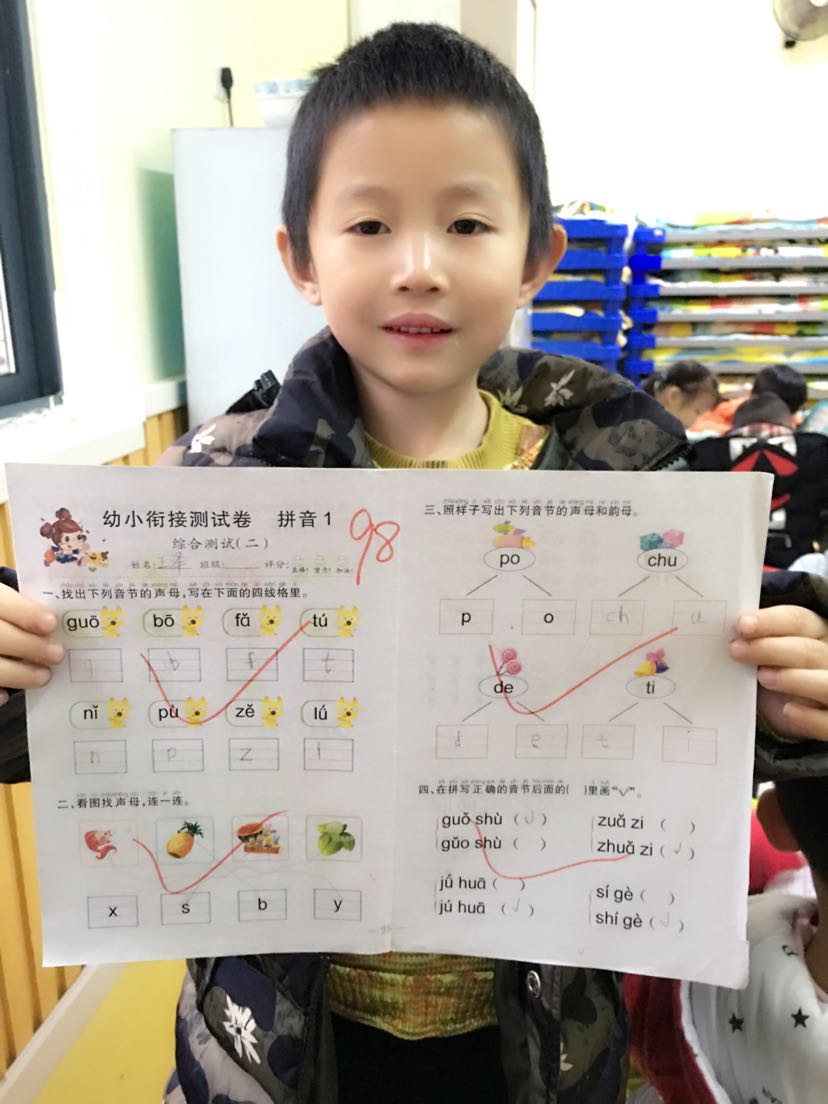 幼小衔接测试卷 拼音1
98
综合测试(二)
姓名: 班级: 评分:
一、找出下列音节的声母,写在下面的四线格里。
guō bō fǎ tú
g b f t
nǐ pù zě lǘ
n p z l
二、看图找声母,连一连。
x s b y
三、照样子写出下列音节的声母和韵母。
po chu
p o ch u
de ti
d e t i
四、在拼写正确的音节后面的( )里画“√”。
guǒ shù (√) zuā zi ( )
gǔo shù ( ) zhuā zi (√)
jǘ huā ( ) sí gè ( )
jú huā (√) shí gè (√)